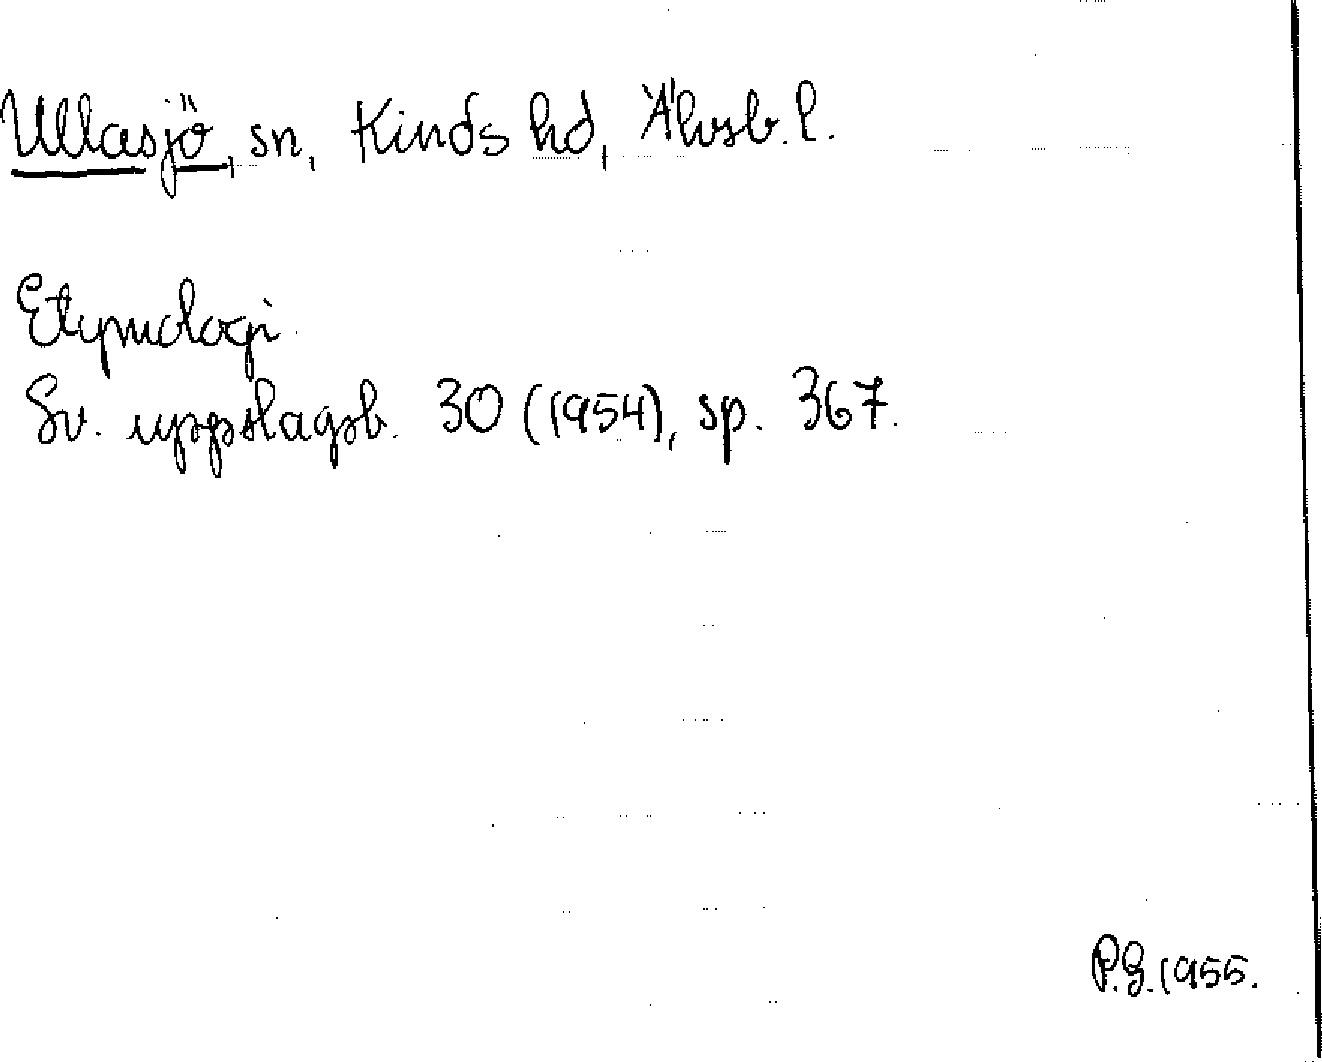 Ullasjö, sn, Kinds hd, Älvsb. l.
Etymologi.
Sv. uppslagsb. 30 (1954), sp. 367.
P.G. 1955.